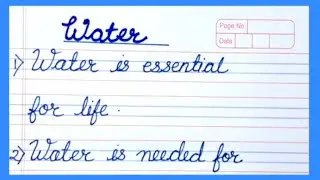 Water
Page No.
Date
1) Water is essential
for life.
2) Water is needed for